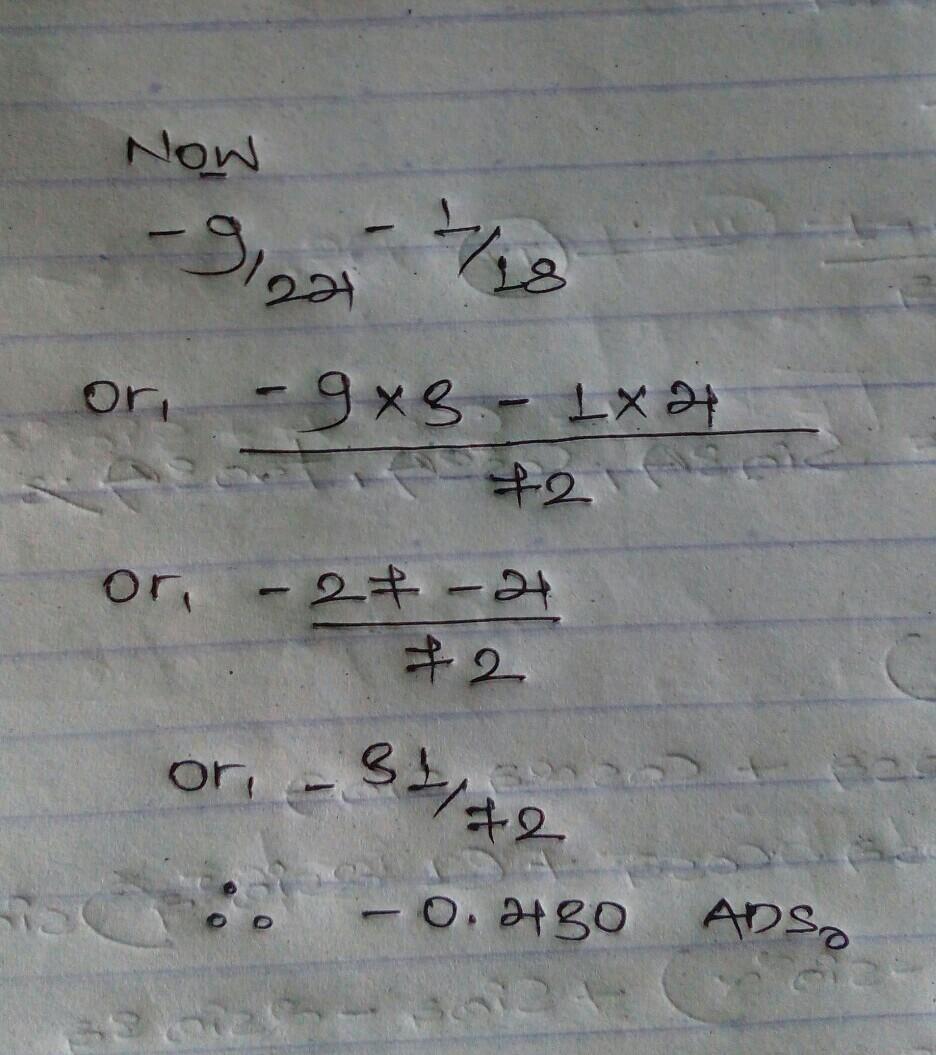 NOW
-9/24 - 1/18
or, -9×3 - 1×4
72
or, -27 - 4
72
or, -31/72
∴ -0.430 ANS